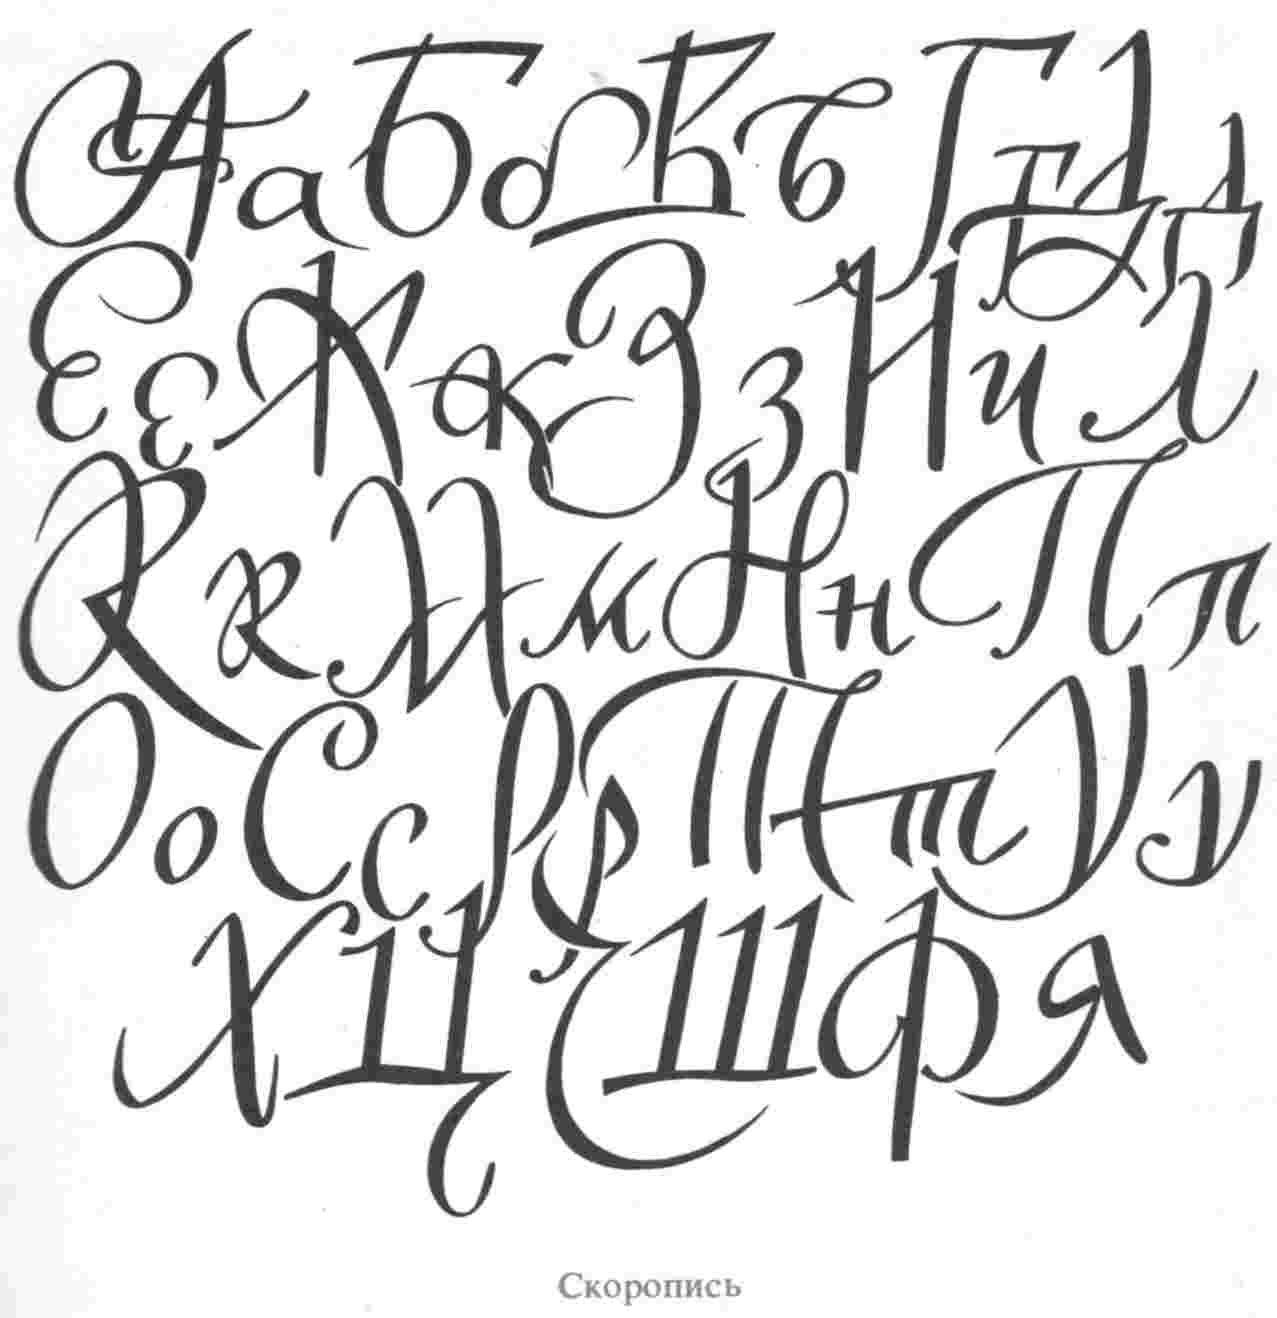 А а Б б В в Г г Д д
Е е Ж ж З з И и Л
К к М м Н н П п
О о С с Р р Т т У у
Х Ц Ш Ф Я
Скоропись